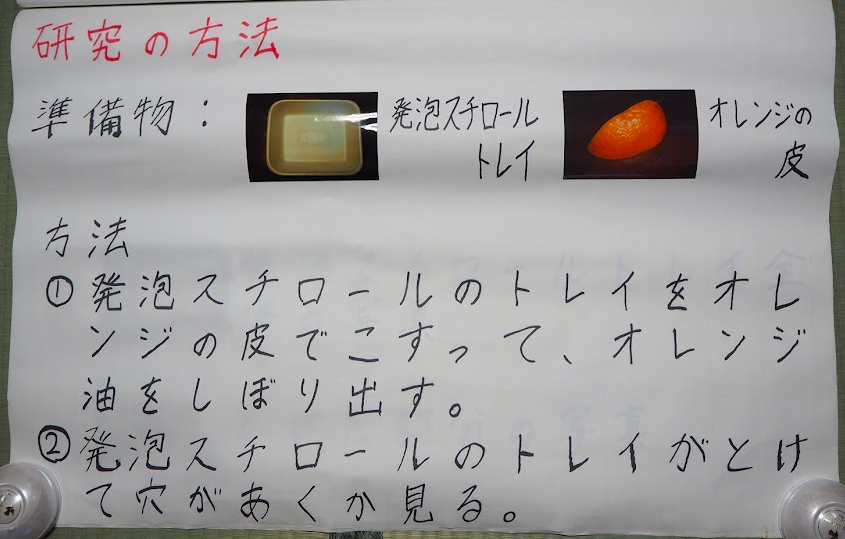 研究の方法
準備物：
発泡スチロール
トレイ
オレンジの
皮
方法
①発泡スチロールのトレイをオレ
ンジの皮でこすって、オレンジ
油をしぼり出す。
②発泡スチロールのトレイがとけ
て穴があくか見る。